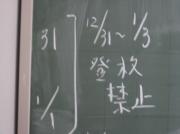 31
1/1
12/31～1/3
登校
禁止